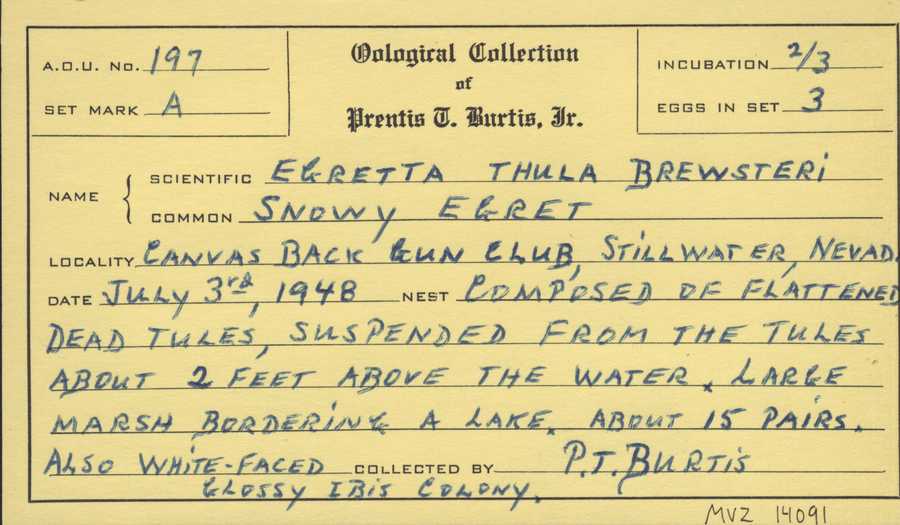 A.O.U. No. 197
SET MARK A
Oological Collection
of
Prentis T. Burtis, Jr.
INCUBATION 2/3
EGGS IN SET 3
NAME { SCIENTIFIC EGRETTA THULA BREWSTERI
COMMON SNOWY EGRET
LOCALITY CANVAS BACK GUN CLUB, STILLWATER, NEVAD.
DATE JULY 3rd, 1948 NEST COMPOSED OF FLATTENED
DEAD TULES, SUSPENDED FROM THE TULES
ABOUT 2 FEET ABOVE THE WATER. LARGE
MARSH BORDERING A LAKE. ABOUT 15 PAIRS.
ALSO WHITE-FACED COLLECTED BY P.T. BURTIS
GLOSSY IBIS COLONY.
MVZ 14091